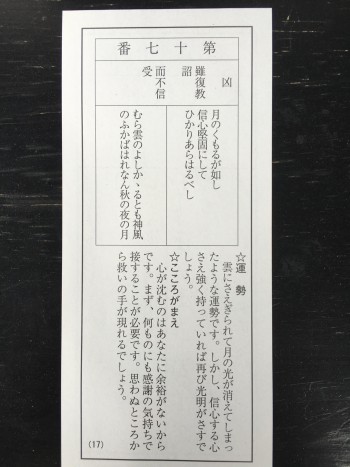 第十七番
凶
雖復教
詔
而不信
受
月のくもるが如し
信心堅固にして
ひかりあらはるべし
むら雲のよしかゝるとも神風
のふかばはれなん秋の夜の月
☆運勢
雲にさえぎられて月の光が消えてしまっ
たような運勢です。しかし、信心する心
さえ強く持っていれば再び光明がさすで
しょう。
☆こころがまえ
心が沈むのはあなたに余裕がないから
です。まず、何ものにも感謝の気持ちで
接することが必要です。思わぬところか
ら救いの手が現れるでしょう。
(17)